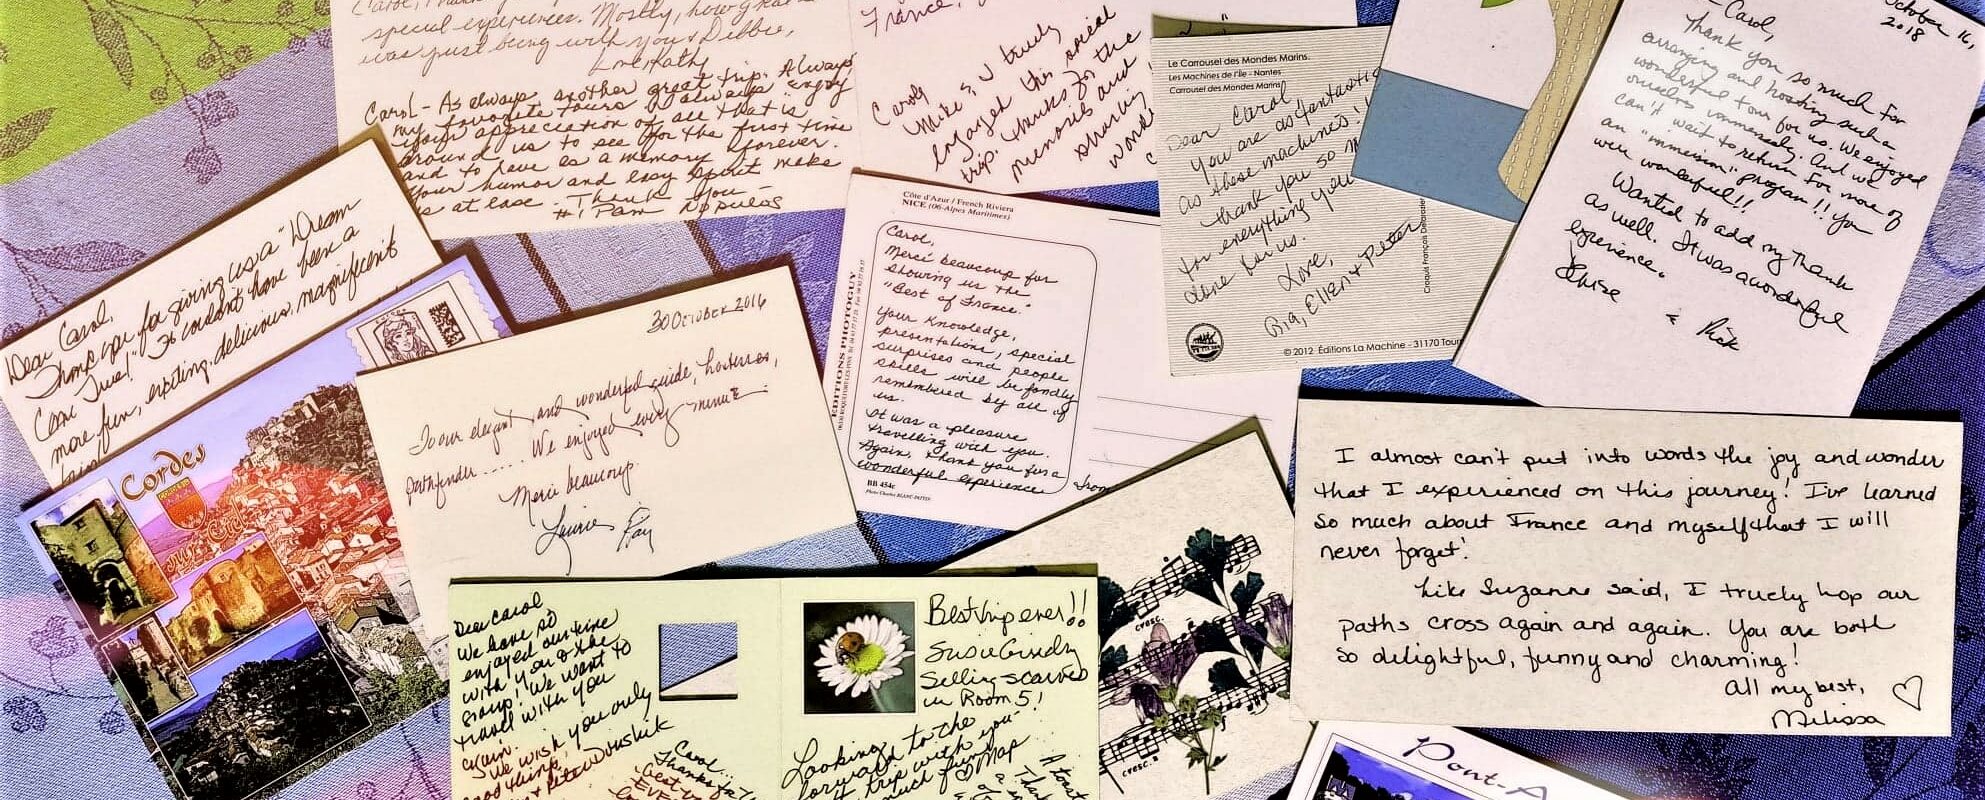 special experiences. Mostly, how great
was just being with you & Debbie,
Love, Kathy
Carol - As always another great trip. Always
my favourite tours. I always enjoy
your appreciation of all that is
around us to see for the first time
and to have as a memory forever.
Your humor and easy spirit make
us at ease. Thank you -
#1 Pam
France,
Carol,
Mike & I truly
enjoyed this
trip. Thanks for the
memories and
sharing
Le Carrousel des Mondes Marins.
Les Machines de l'île - Nantes
Carrousel des Mondes Marins
Dear Carol
You are as fantastic
as these machines!!
thank you so
for everything you
done for us.
Love,
Big, Ellen & Peter
© 2012 Éditions La Machine - 31170
October 16,
2018
Carol,
Thank you so much for
arranging and hosting such a
wonderful tour for us. We enjoyed
ourselves immensely. And we
can't wait to return for more of
an "immersion" program!! You
were wonderful!!
Wanted to add my thanks
as well. It was a wonderful
experience.
& Rick
Dear Carol,
Thank you for giving us a "Dream
Come True!" It couldn't have been a
more fun, exciting, delicious, magnificent
Cordes
sur Ciel
30 October 2016
To our elegant and wonderful guide, hostess,
pathfinder..... We enjoyed every minute
Merci beaucoup.
Côte d'Azur / French Riviera
NICE (06-Alpes Maritimes)
EDITIONS PHOTOGUY
Carol,
Merci beaucoup for
showing us the
"Best of France."
Your knowledge,
presentations, special
surprises and people
skills will be fondly
remembered by all of
us.
It was a pleasure
travelling with you.
Again, thank you for a
wonderful experience
BB 454c
I almost can't put into words the joy and wonder
that I experienced on this journey! I've learned
so much about France and myself that I will
never forget!
Like Suzanne said, I truely hop our
paths cross again and again. You are both
so delightful, funny and charming!
All my best,
Melissa
Dear Carol
We have so
enjoyed our time
with you & the
group! We want to
travel with you
again.
We wish you only
good things,
Best trip ever!!
Susie
Selling scarves
in Room 5!
Looking
forward to the
trip with you -
much fun!
Carol...
Thanks for
best
EVER
cresc.
cresc.
cresc.
Pont-A